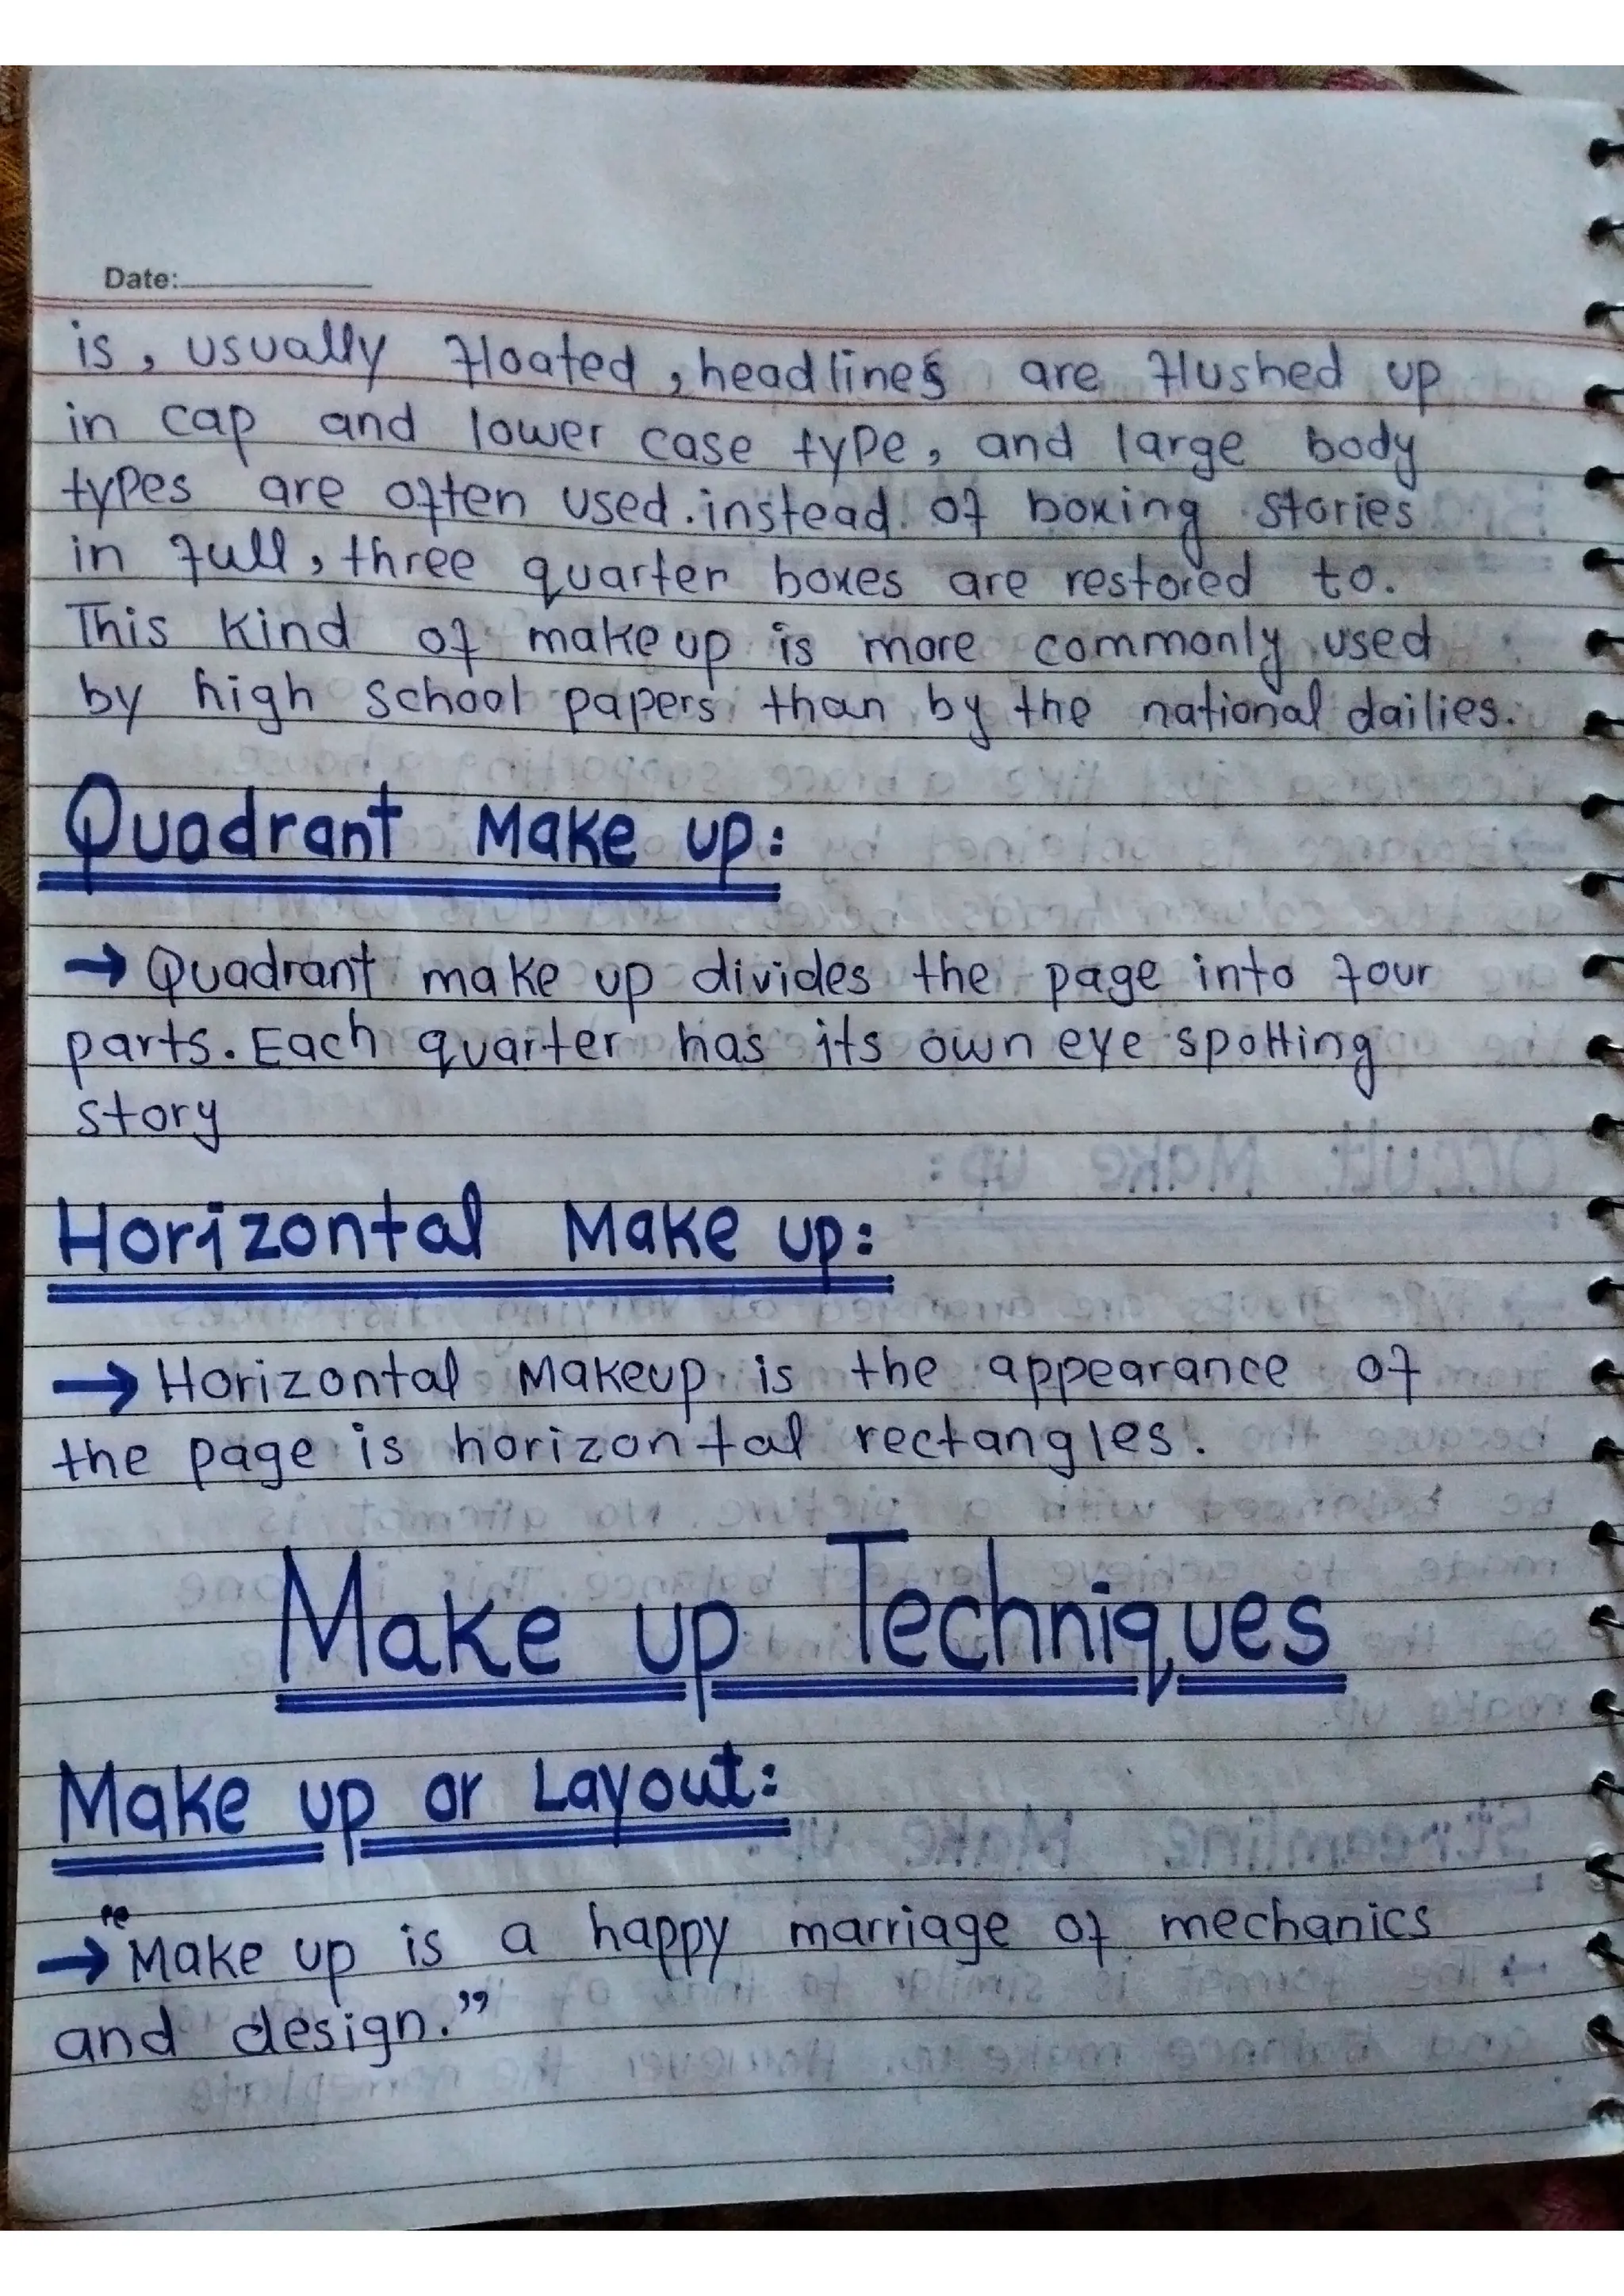 Date:
is, usually floated, headlines are flushed up
in cap and lower case type, and large body
types are often used. instead of boxing stories
in full, three quarter boxes are restored to.
This kind of make up is more commonly used
by high school papers than by the national dailies.
Quadrant Make up:
→ Quadrant make up divides the page into four
parts. Each quarter has its own eye spotting
story
Horizontal Make up:
→ Horizontal Makeup is the appearance of
the page is horizontal rectangles.
Make up Techniques
Make up or Layout:
→ "Make up is a happy marriage of mechanics
and design."